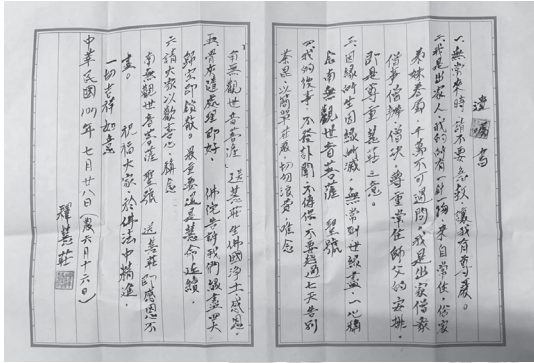 遺囑書
一、無常來時、請不要急救、讓我有尊嚴。
二、我是出家人、我的所有一針一線來自常住、俗家
弟妹眷屬、千萬不可過問、我是出家僧眾
僧事僧辦僧決、尊重常住師父的安排。
即是尊重慧莊之意。
三、因緣所生因緣滅、無常到世緣盡、一心稱
念南無觀世音菩薩 聖號
四、我的後事、不發訃聞、不傳供、不要超過七天告別
茶毘以簡單莊嚴、切勿浪費、唯念
南無觀世音菩薩 送慧莊生佛國淨土感恩。
五、骨灰遠處皆即好、 佛陀告訴我們緣盡四大
歸空即錯敬。最重要還是慧命延續。
六、請大家以歡喜心稱念
南無觀世音菩薩 聖號 送慧莊 即感恩不
盡。 祝福大家、於佛法中精進。
一切吉祥如意
中華民國107年七月廿八日(農六月十六日)
釋慧莊